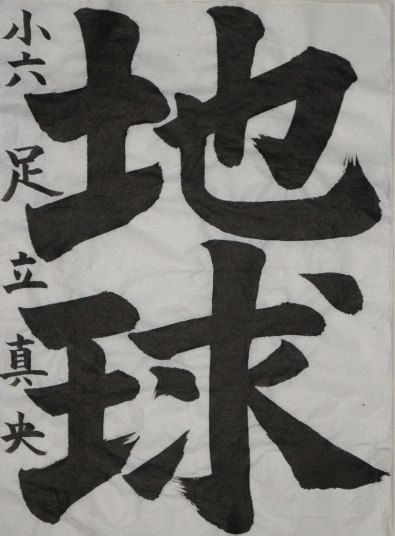 地球
小六 足立真央